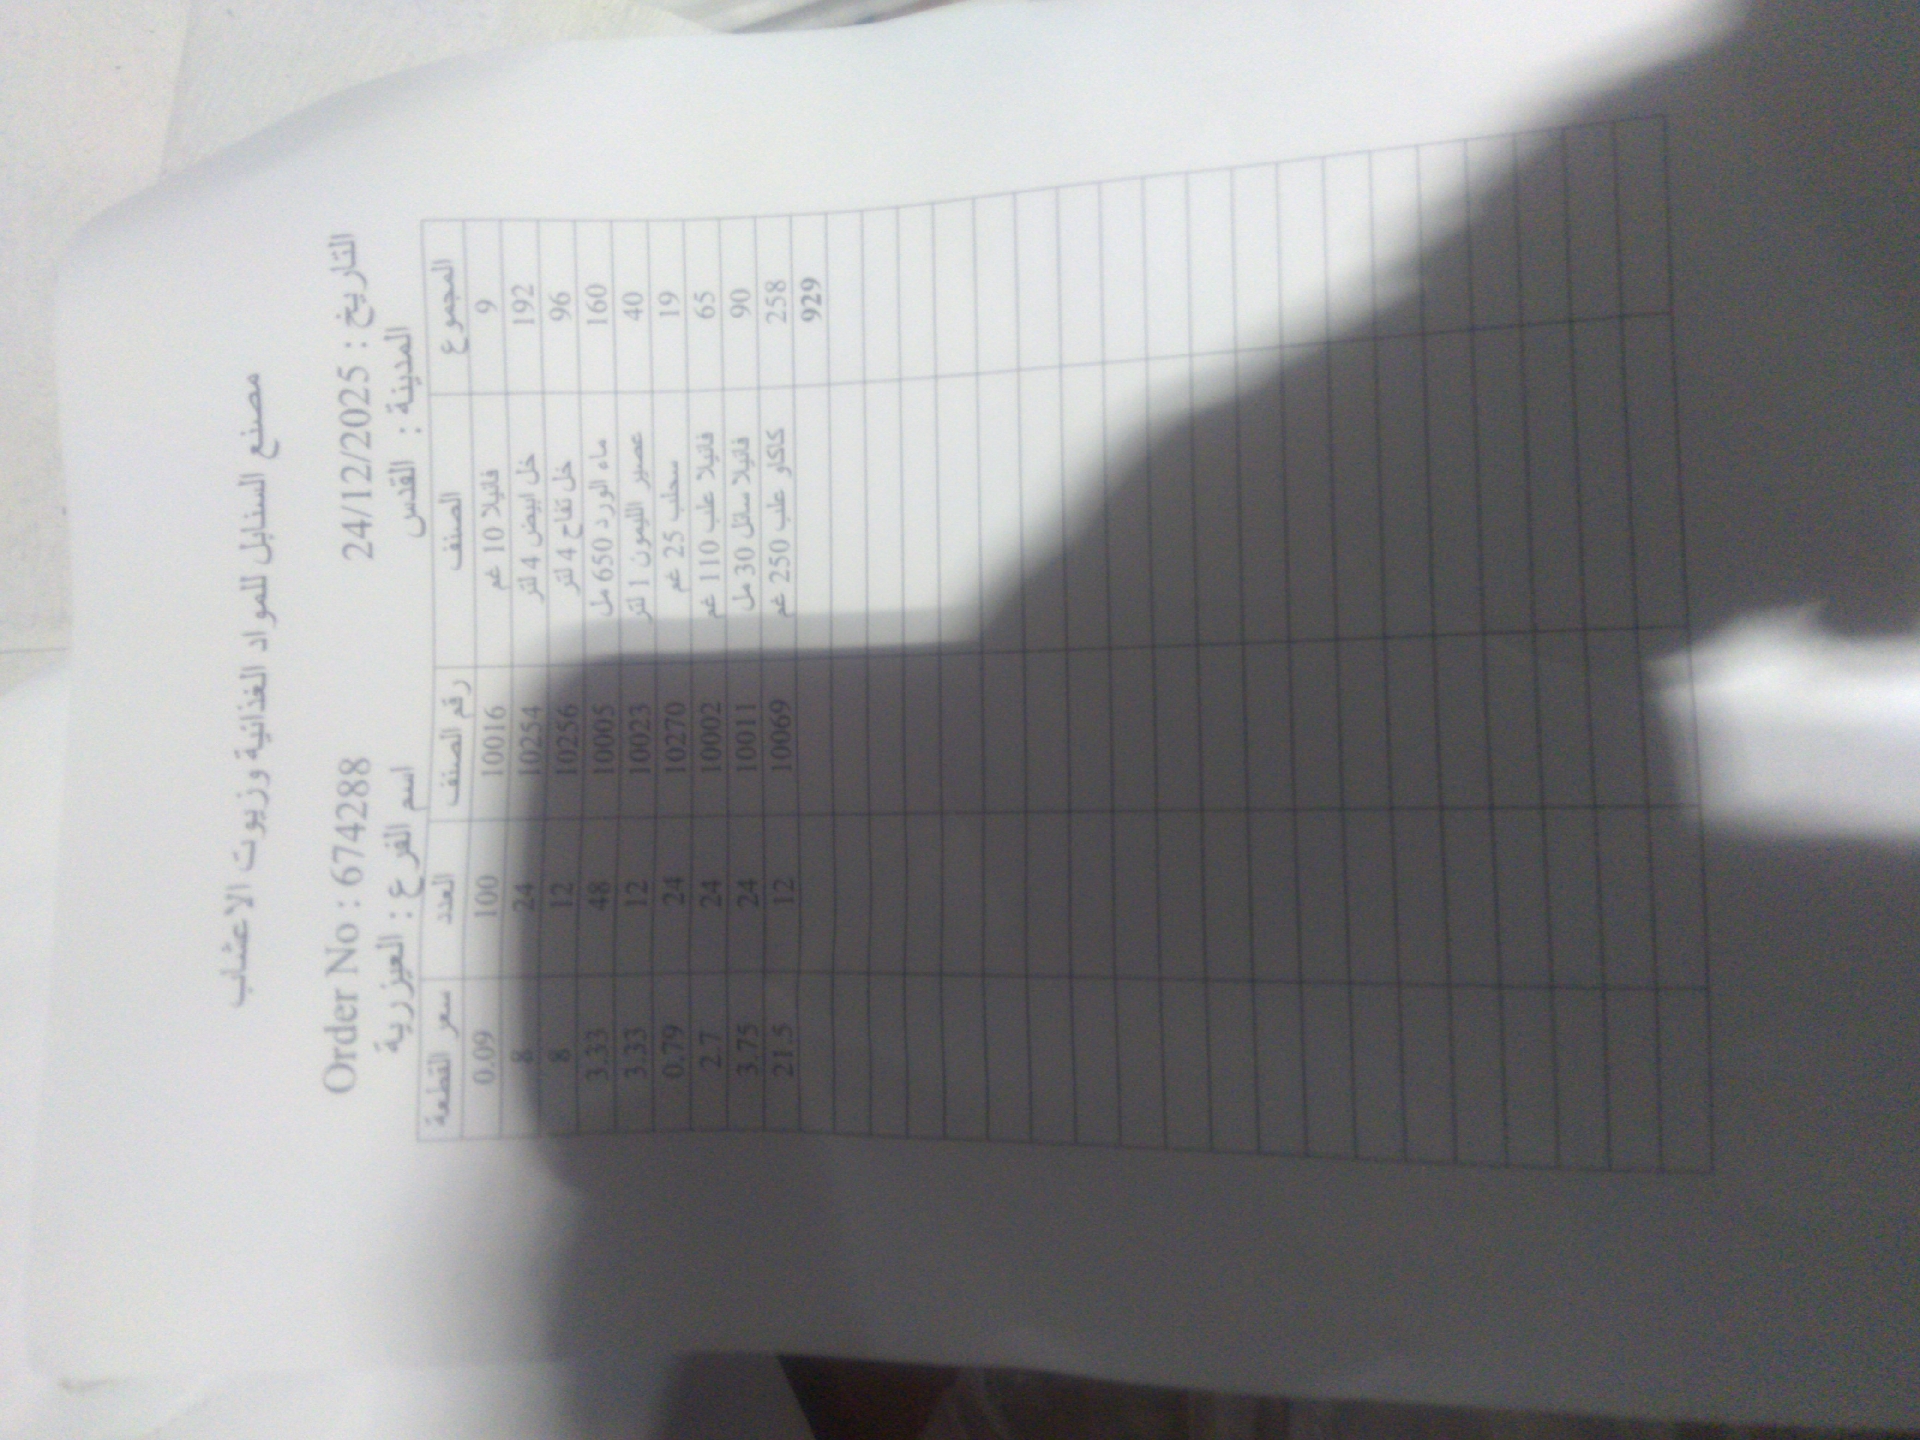 مصنع السنابل للمواد الغذائية وزيوت الاعشاب
Order No : 674288 التاريخ : 24/12/2025
اسم الفرع : العيزرية المدينة : القدس
سعر القطعة العدد رقم الصنف الصنف المجموع
0.09 100 10016 فانيلا 10 غم 9
8 24 10254 خل ابيض 4 لتر 192
8 12 10256 خل تفاح 4 لتر 96
3.33 48 10005 ماء الورد 650 مل 160
3.33 12 10023 عصير الليمون 1 لتر 40
0.79 24 10270 سحلب 25 غم 19
2.7 24 10002 فانيلا علب 110 غم 65
3.75 24 10011 فانيلا سائل 30 مل 90
21.5 12 10069 كاكاو علب 250 غم 258
929